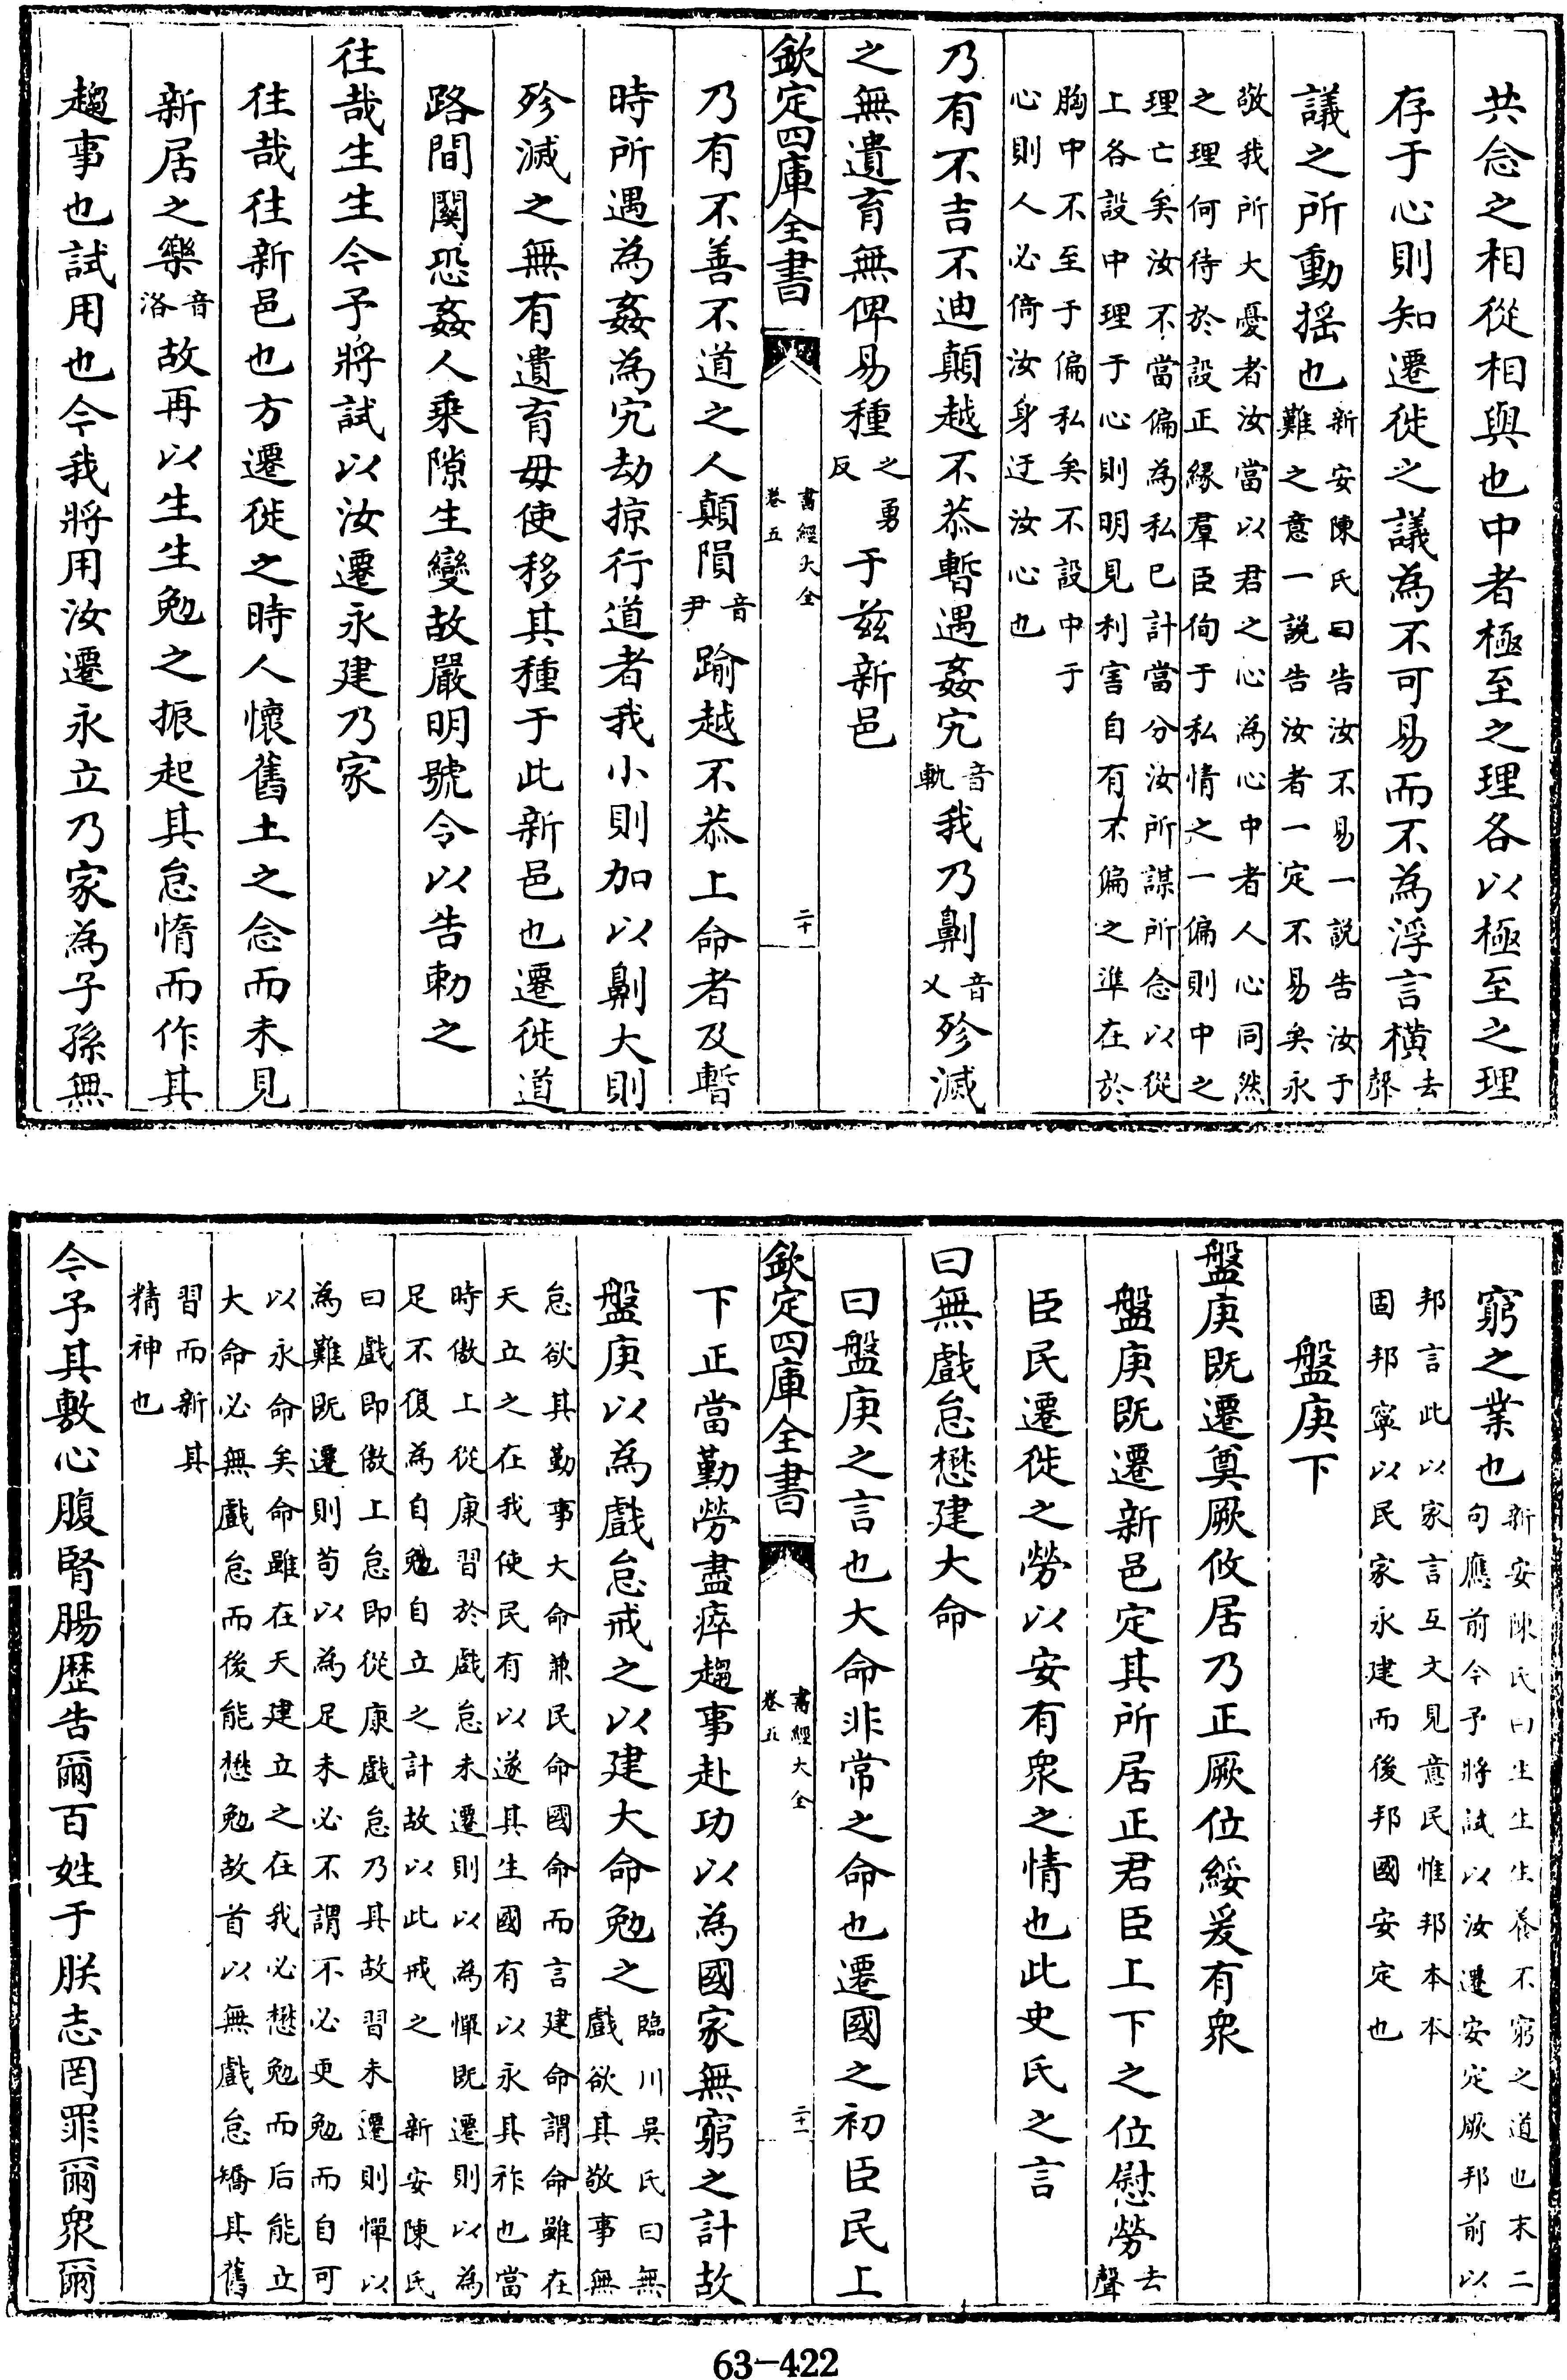 共念之相從相與也中者極至之理各以極至之理
存于心則知遷徙之議為不可易而不為浮言橫去
聲
議之所動揺也新安陳氏曰告汝不易一説告汝于
難之意一説告汝者一定不易矣永
敬我所大憂者汝當以君之心為心中者人心同然
之理何待於設正縁羣臣徇于私情之一偏則中之
理亡矣汝不當偏為私已計當分汝所謀所念以從
上各設中理于心則明見利害自有不偏之凖在於
胸中不至于偏私矣不設中于
心則人必倚汝身迂汝心也
乃有不吉不迪顛越不恭暫遇姦宄音
軌我乃劓音
乂殄滅
之無遺育無俾易種之勇
反于兹新邑
欽定四庫全書
書經大全
卷五
二十一
乃有不善不道之人顛隕音
尹踰越不恭上命者及暫
時所遇為姦為宄劫掠行道者我小則加以劓大則
殄滅之無有遺育毋使移其種于此新邑也遷徙道
路間關恐姦人乘隙生變故嚴明號令以告勅之
往哉生生今予將試以汝遷永建乃家
往哉往新邑也方遷徙之時人懷舊土之念而未見
新居之樂音
洛故再以生生勉之振起其怠惰而作其
趨事也試用也今我將用汝遷永立乃家為子孫無
窮之業也新安陳氏曰生生生養不窮之道也末二
句應前今予將試以汝遷安定厥邦前以
邦言此以家言互文見意民惟邦本本
固邦寧以民家永建而後邦國安定也
盤庚下
盤庚既遷奠厥攸居乃正厥位綏爰有衆
盤庚既遷新邑定其所居正君臣上下之位慰勞去
聲
臣民遷徙之勞以安有衆之情也此史氏之言
曰無戲怠懋建大命
曰盤庚之言也大命非常之命也遷國之初臣民上
欽定四庫全書
書經大全
卷五
二十二
下正當勤勞盡瘁趨事赴功以為國家無窮之計故
盤庚以為戲怠戒之以建大命勉之臨川吳氏曰無
戲欲其敬事無
怠欲其勤事大命兼民命國命而言建命謂命雖在
天立之在我使民有以遂其生國有以永其祚也當
時傲上從康習於戲怠未遷則以為憚既遷則以為
足不復為自勉自立之計故以此戒之　新安陳氏
曰戲即傲上怠即從康戲怠乃其故習未遷則憚以
為難既遷則苟以為足未必不謂不必更勉而自可
以永命矣命雖在天建立之在我必懋勉而后能立
大命必無戲怠而後能懋勉故首以無戲怠矯其舊
習而新其
精神也
今予其敷心腹腎腸歴告爾百姓于朕志罔罪爾衆爾
63-422